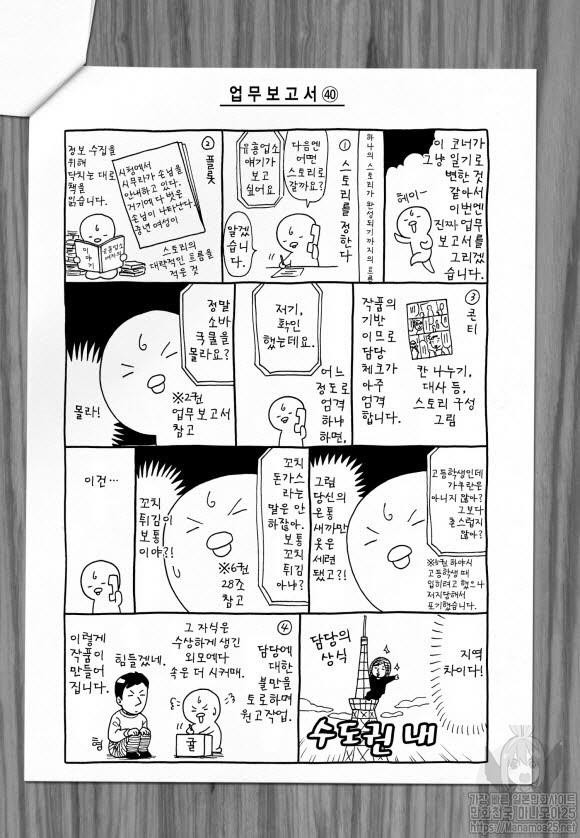 업무보고서㊵
이 코너가
그냥 일기로
변한 것
같아서
이번엔
진짜 업무
보고서를
그리겠
습니다.
헤이―
하나의 스토리가 완성되기까지의 흐름
① 스토리를 정한다
다음엔
어떤
스토리로
갈까요?
유흥업소
얘기가
보고
싶어요
알겠
습니다.
② 플롯
시청에서
사무라가 손님을
안내하고 있다.
거기에 다 벗은
손님이 나타난다.
중년 여성이
정보 수집을
위해
닥치는 대로
책을
읽습니다.
이야기
유흥업소
스토리의
대략적인 흐름을
적은 것
③ 콘티
칸 나누기,
대사 등,
스토리 구성
그림
작품의
기반
이므로
담당
체크가
아주
엄격
합니다.
어느
정도로
엄격
하냐
하면,
저기,
확인
했는데요.
정말
소바
국물을
몰라요?
※2권
업무보고서
참고
몰라!
고등학생인데
가쿠란은
아니지 않아?
그보다
촌스럽지
않아?
※5권 하야시
고등학생 때
입히려고 했으나
저지당해서
포기했습니다.
그럼
당신의
온통
새까만
옷은
세련
됐고?!
꼬치
돈가스
라는
말은 안
하잖아.
보통
꼬치
튀김
아냐?
※6권
28조
참고
꼬치
튀김이
보통
이야?!
이건…
지역
차이다!
담당의
상식
수도권 내
④ 담당에
대한
불만을
토로하며
원고작업.
그 자식은
수상하게 생긴
외모에다
속은 더 시커매.
굴
힘들겠네.
형
이렇게
작품이
만들어
집니다.
가장 빠른 일본만화사이트
만화천국 마나모아25
https://Manamoa25.net